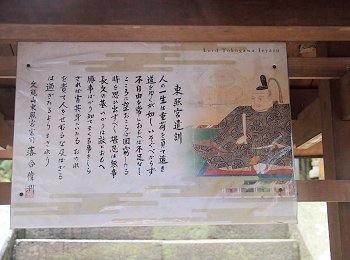 Lord Tokugawa Ieyasu
東照宮遺訓
人の一生は重荷を負て遠き
道をゆくが如しいそぐべからず
不自由を常とおもへば不足なし
こころに望おこらば困窮したる
時を思ひ出すべし堪忍は無事
長久の基いかりは敵とおもへ
勝事ばかり知てまくる事をしら
ざれば害其身にいたるおのれ
を責て人をせむるな及ばざる
は過たるよりまされり
久能山東照宮宮司 落合偉洲